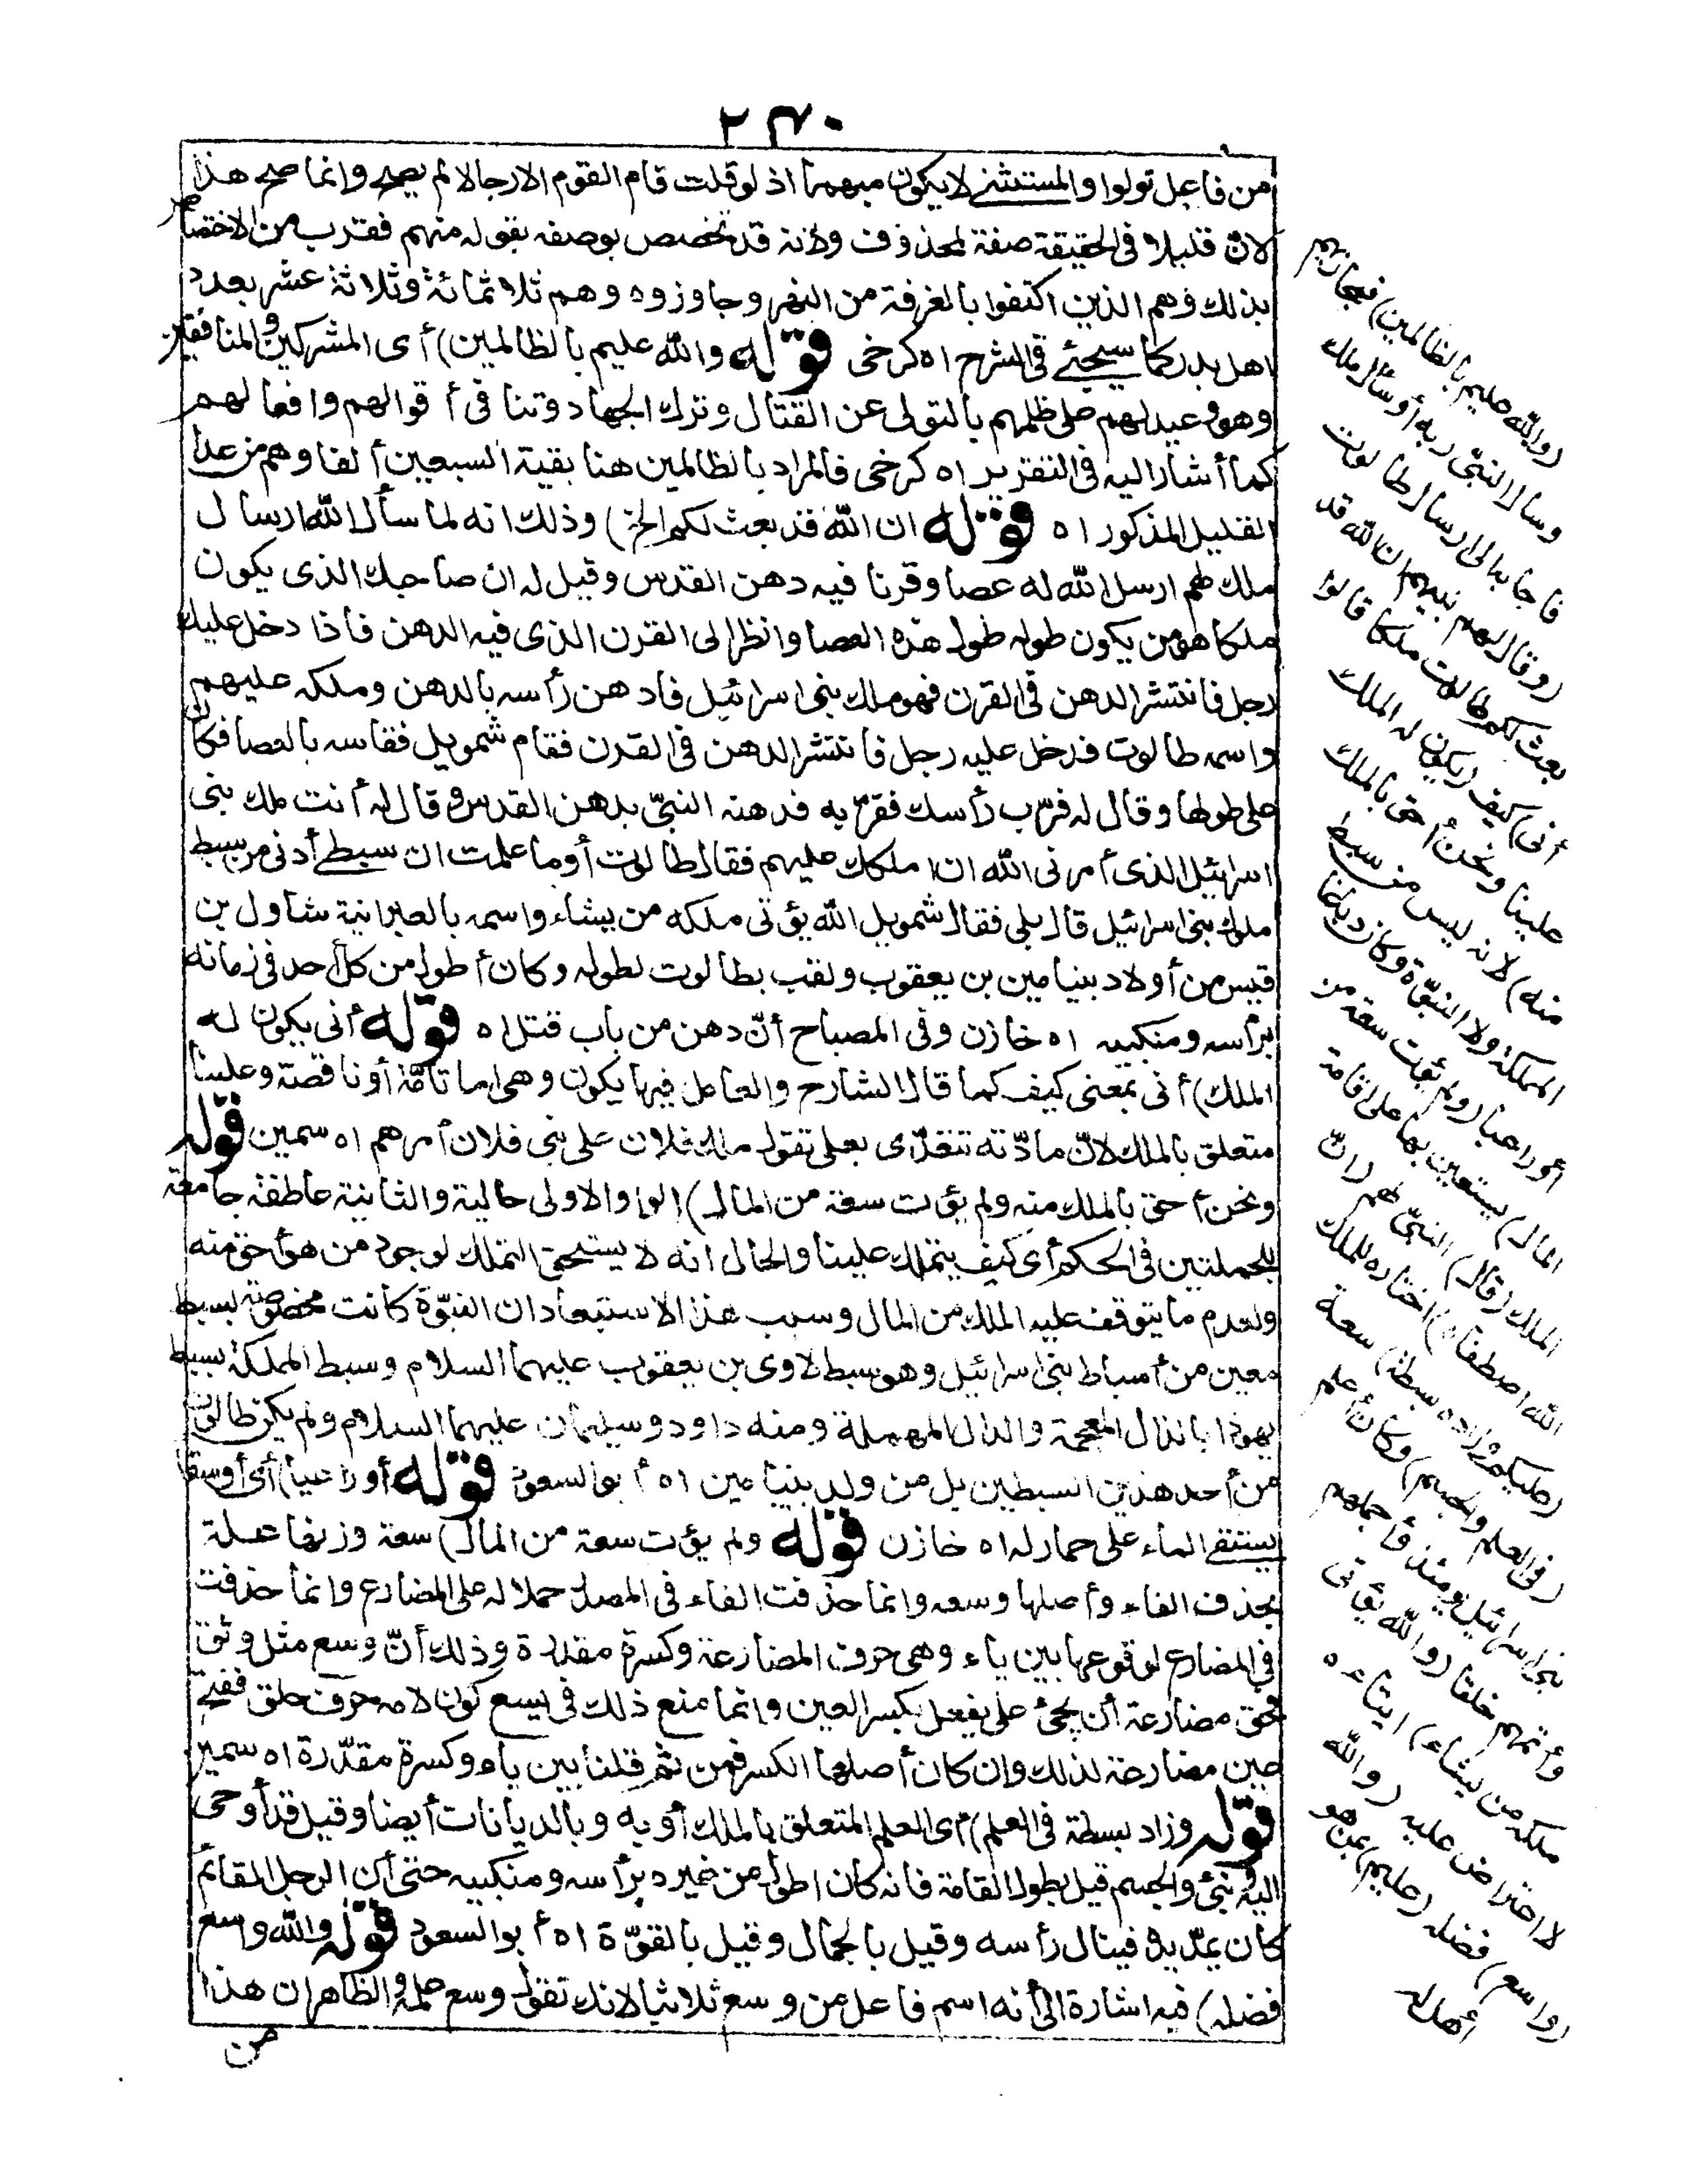 ٢٣٠
من فاعل تولوا والمستثنى لا يكون مبهما اذ لو قلت قام القوم الا رجالا لم يصح وانما صح هذا
لان قليلا فى الحقيقة صفة لمحذوف ولانه قد تخصص بوصفه بقوله منهم فقرب من الاختصاص
بذلك وهم الذين اكتفوا بالغرفة من النهر وجاوزوه وهم ثلاثمائة وثلاثة عشر بعدد
اهل بدر كما سيجئ فى الشرح اه كرخى قوله والله عليم بالظالمين) أى المشركين والمنافقين
وهو وعيد لهم على ظلمهم بالتولى عن القتال وترك الجهاد وتنافى أقوالهم وافعالهم
كما أشار اليه فى التقرير اه كرخى فالمراد بالظالمين هنا بقية السبعين ألفا وهم من عدا
القليل المذكور اه قوله ان الله قد بعث لكم الخ) وذلك انه لما سأل الله ارسال
ملك لهم ارسل الله له عصا وقرنا فيه دهن القدس وقيل له ان صاحبك الذى يكون
ملكا هو من يكون طوله طول هذه العصا وانظر الى القرن الذى فيه الدهن فاذا دخل عليك
رجل فانتشر الدهن فى القرن فهو ملك بنى اسرائيل فادهن رأسه بالدهن وملكه عليهم
واسمه طالوت فدخل عليه رجل فانتشر الدهن فى القرن فقام شمويل فقاسه بالعصا فكان
على طولها وقال له قرب رأسك فقربه فدهنه النبىّ بدهن القدس وقال له أنت ملك بنى
اسرائيل الذى أمرنى الله ان املكك عليهم فقال طالوت أوما علمت ان سبطى أدنى من سبط
ملوك بنى اسرائيل قال بلى فقال شمويل الله يؤتى ملكه من يشاء واسمه بالعبرانية شاول بن
قيس من أولاد بنيامين بن يعقوب ولقب بطالوت لطوله وكان أطول من كل أحد فى زمانه
برأسه ومنكبيه اه خازن وفى المصباح أنّ دهن من باب قتل اه قوله أنى يكون له
الملك) أنى بمعنى كيف كما قال الشارح والعامل فيها يكون وهى اما تامّة أو ناقصة وعلينا
متعلق بالملك لانّ مادّته تتعدّى بعلى تقول ملك فلان على بنى فلان أمرهم اه سمين قوله
ونحن أحق بالملك منه ولم يؤت سعة من المال) الواو الاولى حالية والثانية عاطفة جامعة
للجملتين فى الحكم أى كيف يتملك علينا والحال انه لا يستحق التملك لوجود من هو أحق منه
ولعدم ما يتوقف عليه الملك من المال وسبب هذا الاستبعاد ان النبوّة كانت مخصوصة بسبط
معين من أسباط بنى اسرائيل وهو سبط لاوى بن يعقوب عليهما السلام وسبط المملكة بسبط
يهوذا بالذال المعجمة والدال المهملة ومنه داود وسليمان عليهما السلام ولم يكن طالوت
من أحد هذين السبطين بل من ولد بنيامين اه أبو السعود قوله أو راعيا) أى أو سقا
يستقى الماء على حمار له اه خازن قوله ولم يؤت سعة من المال) سعة وزنها علة
بحذف الفاء وأصلها وسعه وانما حذفت الفاء فى المصدر حملا له على المضارع وانما حذفت
فى المضارع لوقوعها بين ياء وهى حرف المضارعة وكسرة مقدرة وذلك أنّ وسع مثل وثق
فحق مضارعه أن يجئ على يفعل بكسر العين وانما منع ذلك فى يسع كون لامه حرف حلق ففتح
عين مضارعه لذلك وان كان أصلها الكسر فمن ثم قلنا بين ياء وكسرة مقدّرة اه سمين
قوله وزاد بسطة فى العلم) أى العلم المتعلق بالملك أو به وبالديانات أيضا وقيل قد أوحى
اليه ونبئ والجسم قيل بطول القامة فانه كان اطول من غيره برأسه ومنكبيه حتى أن الرجل القائم
كان يمدّ يده فينال رأسه وقيل بالجمال وقيل بالقوّة اه أبو السعود قوله والله واسع
فضله) فيه اشارة الى أنه اسم فاعل من وسع ثلاثيا لانك تقول وسع علمه والظاهر ان هذا
من
(والله عليم بالظالمين) فمجازيهم
وسأل النبىّ ربه أرسال ملك
فاجابه الى ارسال طالوت
(وقال لهم نبيهم ان الله قد
بعث لكم طالوت ملكا قالوا
أنى) كيف (يكون له الملك
علينا ونحن أحق بالملك
منه) لانه ليس من سبط
المملكة ولا النبوّة وكان دباغا
أو راعيا (ولم يؤت سعة من
المال) يستعين بها على اقامة
الملك (قال) النبىّ لهم (ان
الله اصطفاه) اختاره للملك
(عليكم وزاده بسطة) سعة
(فى العلم والجسم) وكان أعلم
بنى اسرائيل يومئذ وأجملهم
وأتمهم خلقا (والله يؤتى
ملكه من يشاء) ايتاءه
لا اعتراض عليه (والله
واسع) فضله (عليم) بمن هو
أهل له